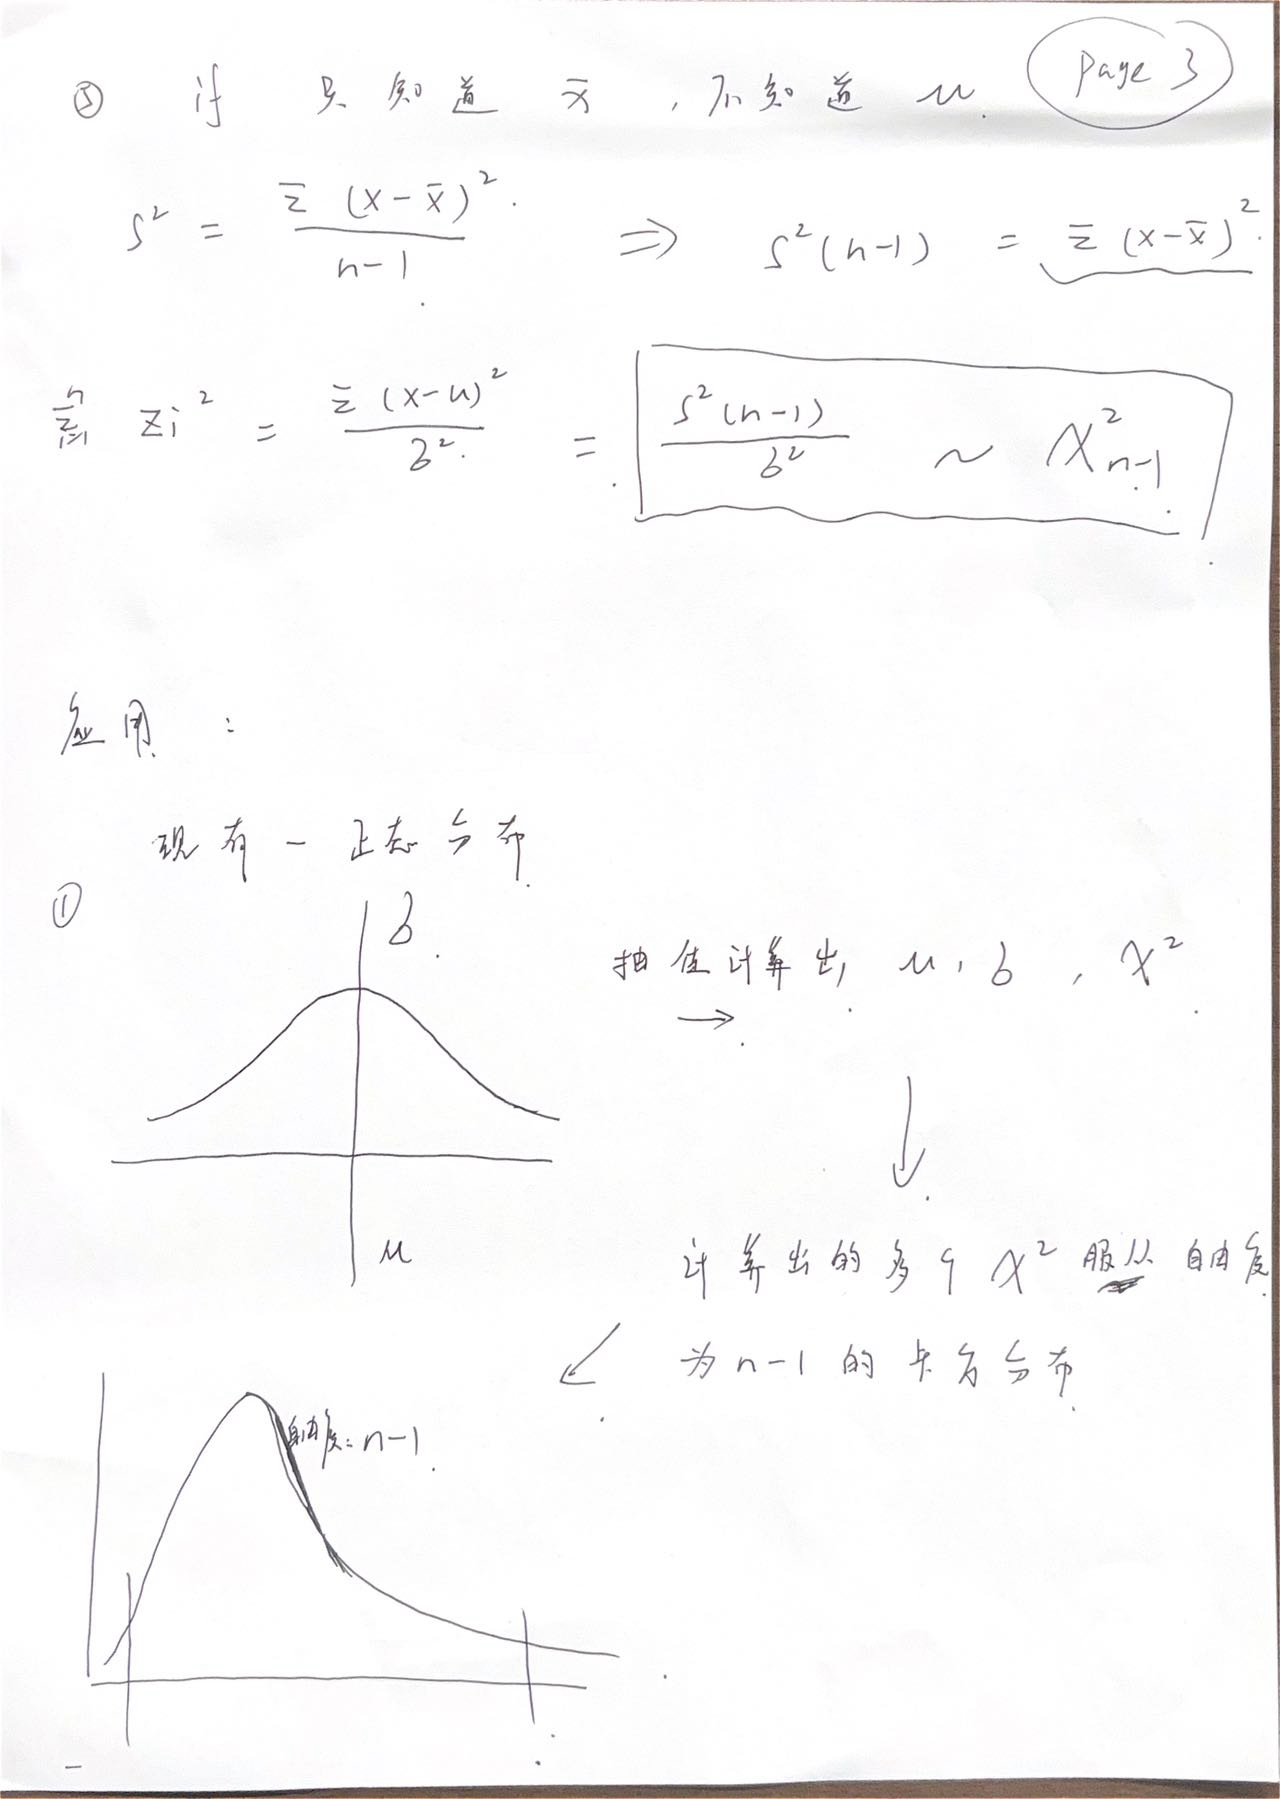 Page 3
⑤ if 只知道 x̄ , 不知道 μ.
S² = Σ(x-x̄)² / n-1 ⇒ S²(n-1) = Σ(x-x̄)²
Σ_{i=1}^{n} Zi² = Σ(x-μ)² / σ² = S²(n-1) / σ² ~ χ²_{n-1}
应用:
现有一正态分布
① σ
抽值计算出 μ, σ, χ²
→
μ
计算出的多个 χ² 服从自由度
为 n-1 的卡方分布
自由度: n-1